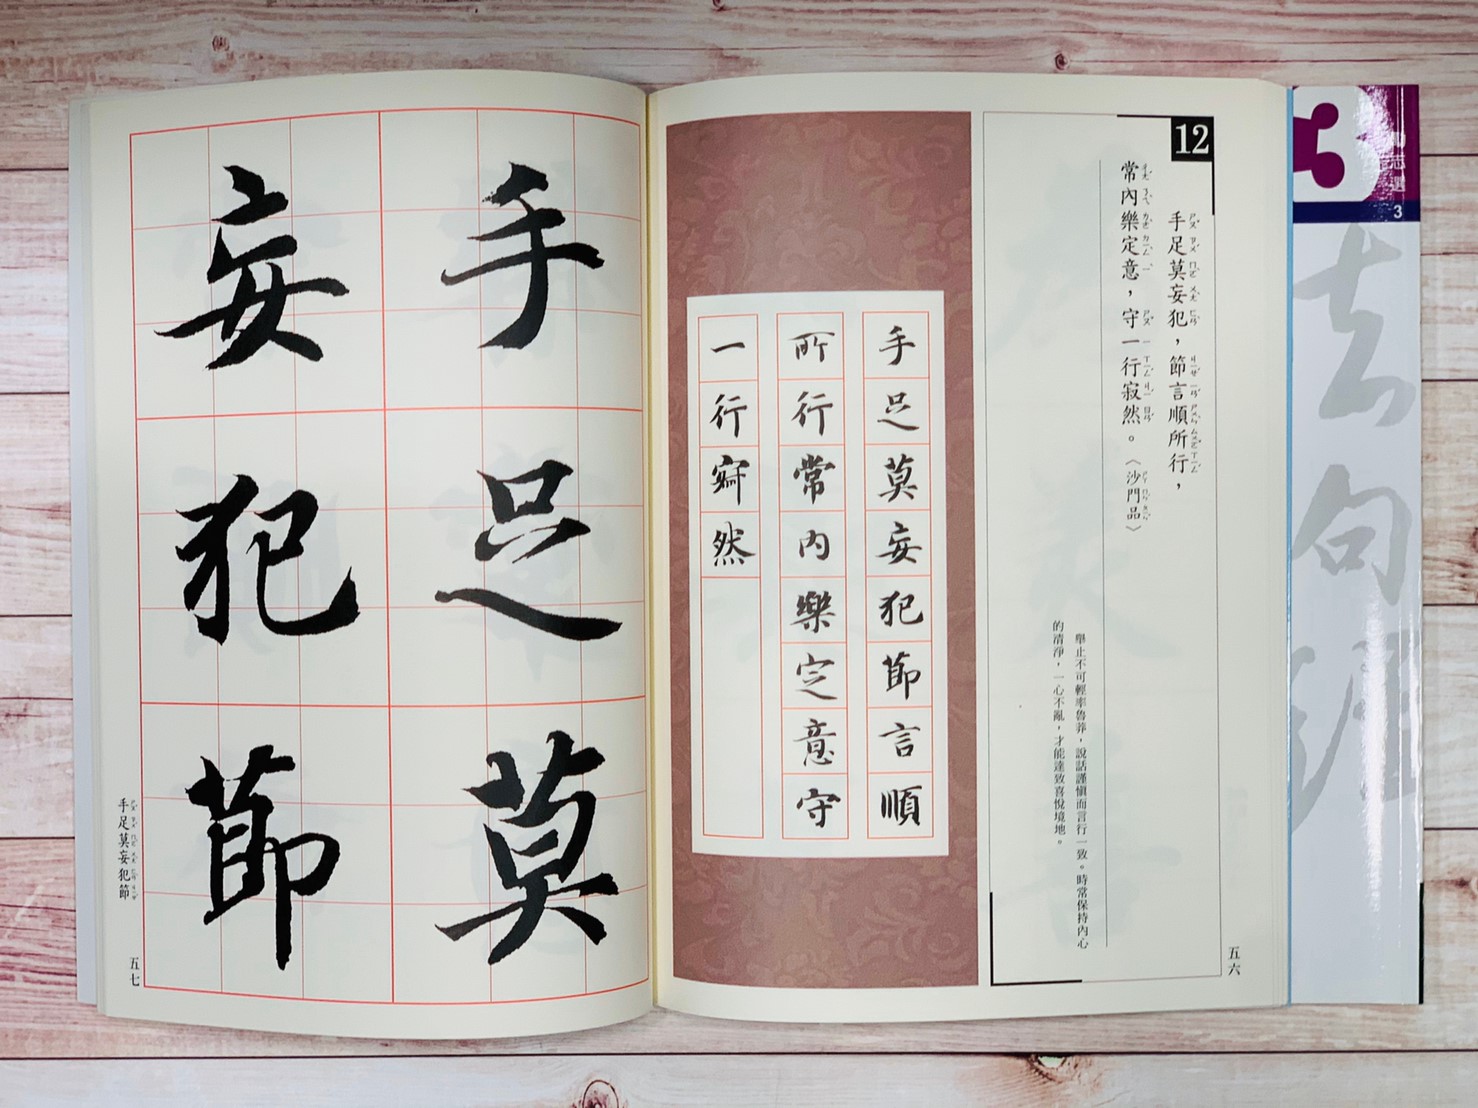 12
手足莫妄犯，節言順所行，
常內樂定意，守一行寂然。〈沙門品〉
舉止不可輕率魯莽，說話謹慎而言行一致。時常保持內心
的清淨，一心不亂，才能達致喜悅境地。
五六
手足莫妄犯節言順
所行常內樂定意守
一行寂然
手足莫
妄犯節
手足莫妄犯節
五七
志選
3
法句經